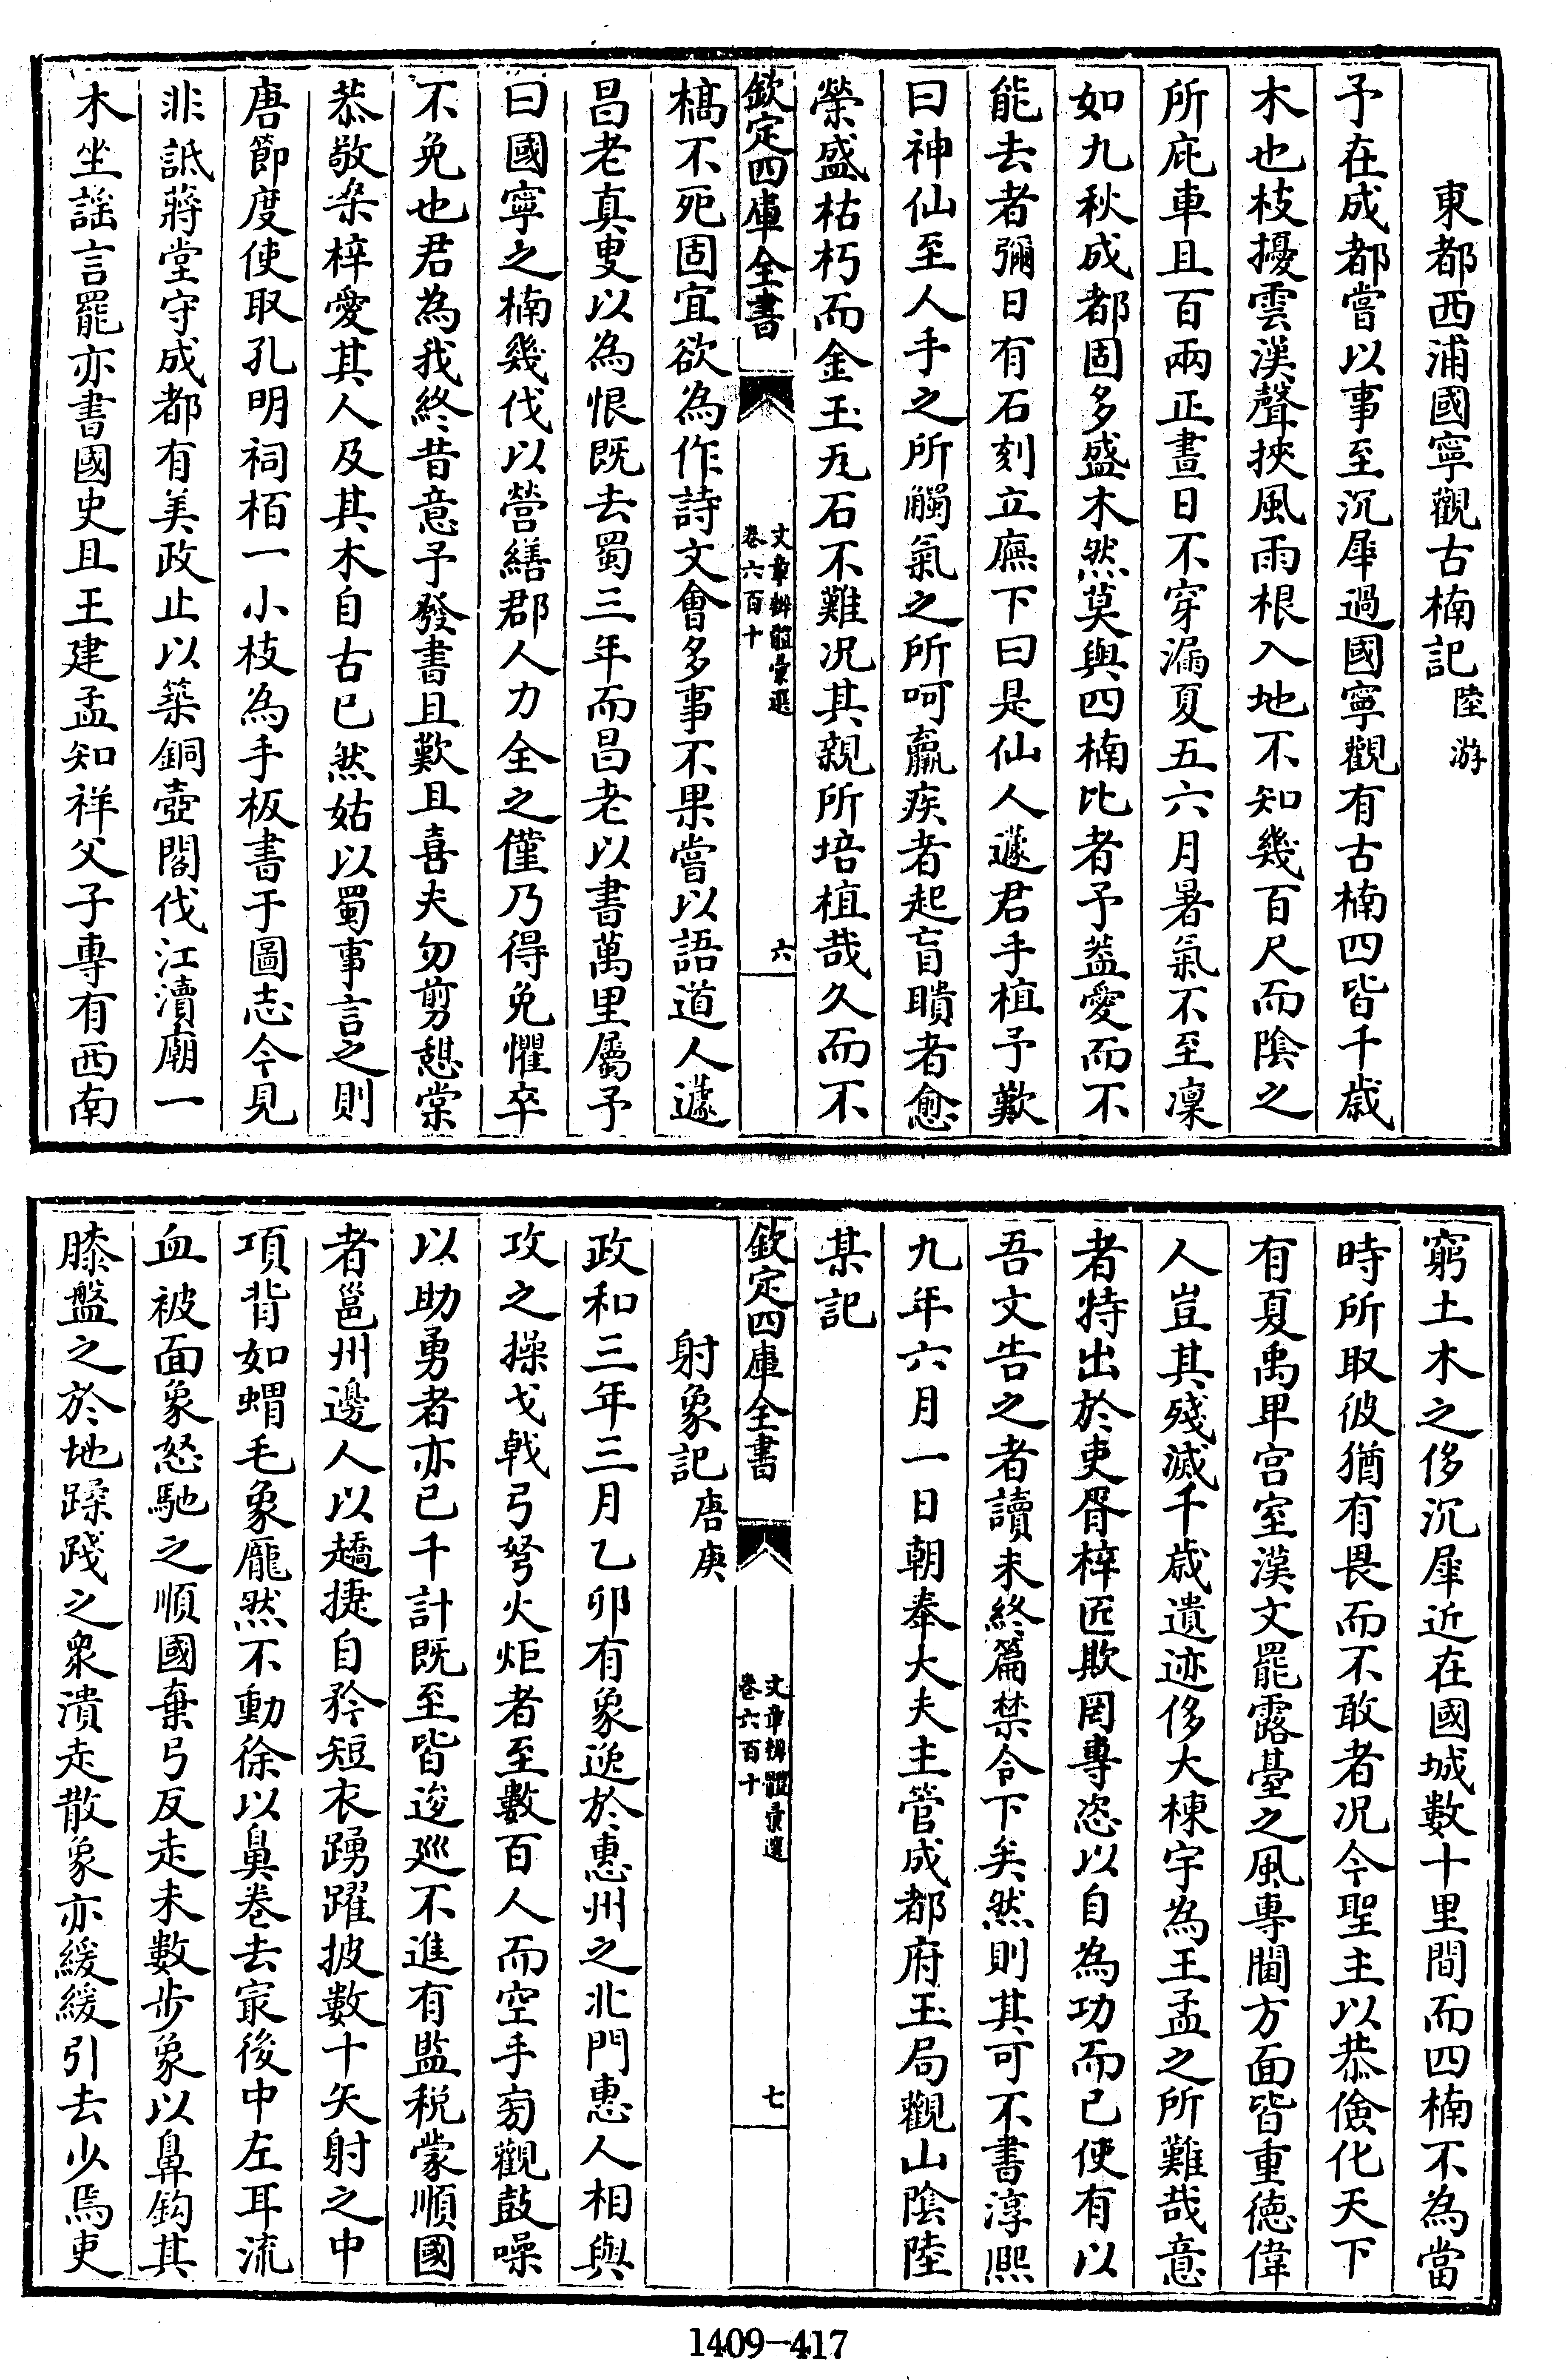 東都西浦國寧觀古楠記陸游
予在成都嘗以事至沉犀過國寧觀有古楠四皆千歲
木也枝擾雲漢聲挾風雨根入地不知幾百尺而陰之
所庇車且百兩正晝日不穿漏夏五六月暑氣不至凜
如九秋成都固多盛木然莫與四楠比者予葢愛而不
能去者彌日有石刻立廡下曰是仙人蘧君手植予歎
曰神仙至人手之所觸氣之所呵羸疾者起盲瞶者愈
榮盛枯朽而金玉瓦石不難况其親所培植哉久而不
欽定四庫全書
文章辨體彙選
卷六百十
六
槁不死固宜欲為作詩文會多事不果嘗以語道人蘧
昌老真叟以為恨既去蜀三年而昌老以書萬里屬予
曰國寧之楠幾伐以營繕郡人力全之僅乃得免懼卒
不免也君為我終昔意予發書且歎且喜夫勿剪憩棠
恭敬桑梓愛其人及其木自古已然姑以蜀事言之則
唐節度使取孔明祠栢一小枝為手板書于圖志今見
非詆蔣堂守成都有美政止以築銅壺閣伐江瀆廟一
木坐謡言罷亦書國史且王建孟知祥父子專有西南
窮土木之侈沉犀近在國城數十里間而四楠不為當
時所取彼猶有畏而不敢者况今聖主以恭儉化天下
有夏禹卑宫室漢文罷露臺之風專閫方面皆重德偉
人豈其殘滅千歲遺迹侈大棟宇為王孟之所難哉意
者特出於吏胥梓匠欺罔專恣以自為功而已使有以
吾文告之者讀未終篇禁令下矣然則其可不書淳熙
九年六月一日朝奉大夫主管成都府玉局觀山陰陸
某記
欽定四庫全書
文章辨體彙選
卷六百十
七
射象記唐庚
政和三年三月乙卯有象逸於惠州之北門惠人相與
攻之操戈戟弓弩火炬者至數百人而空手旁觀鼓噪
以助勇者亦已千計既至皆逡廵不進有監税蒙順國
者邕州邊人以趫捷自矜短衣踴躍披數十矢射之中
項背如蝟毛象龎然不動徐以鼻卷去冣後中左耳流
血被面象怒馳之順國棄弓反走未數步象以鼻鈎其
膝盤之於地蹂踐之衆潰走散象亦緩緩引去少焉吏
1409-417